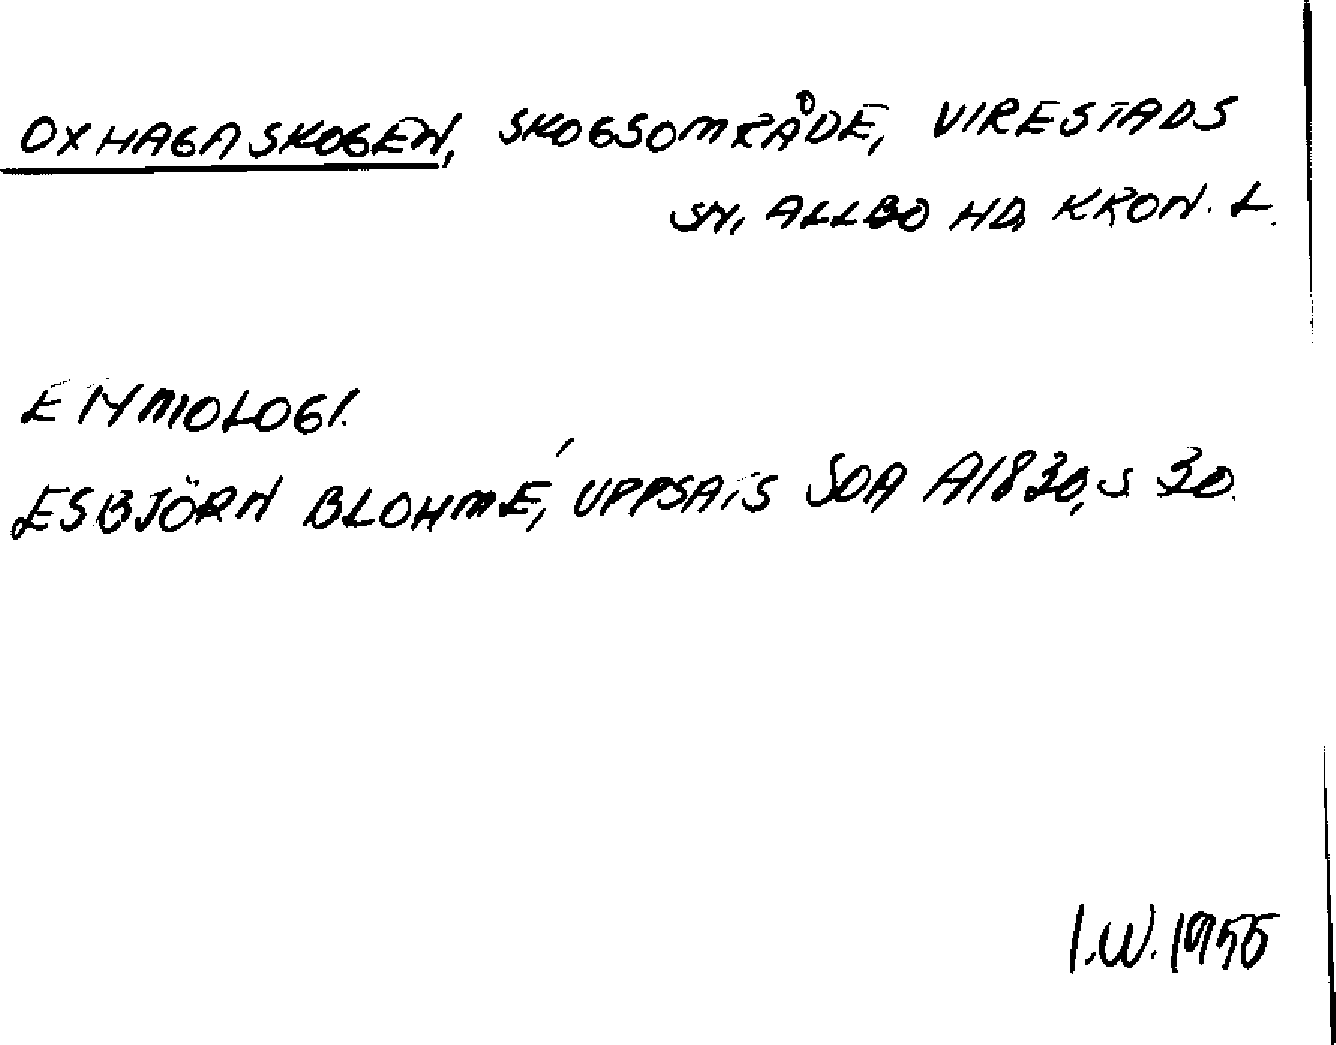 OXHAGASKOGEN, SKOGSOMRÅDE, VIRESTADS
SN, ALLBO HD, KRON. L.
ETYMOLOGI.
ESBJÖRN BLOHMÉ, UPPSATS SOA A1830, S 30.
I.W. 1955